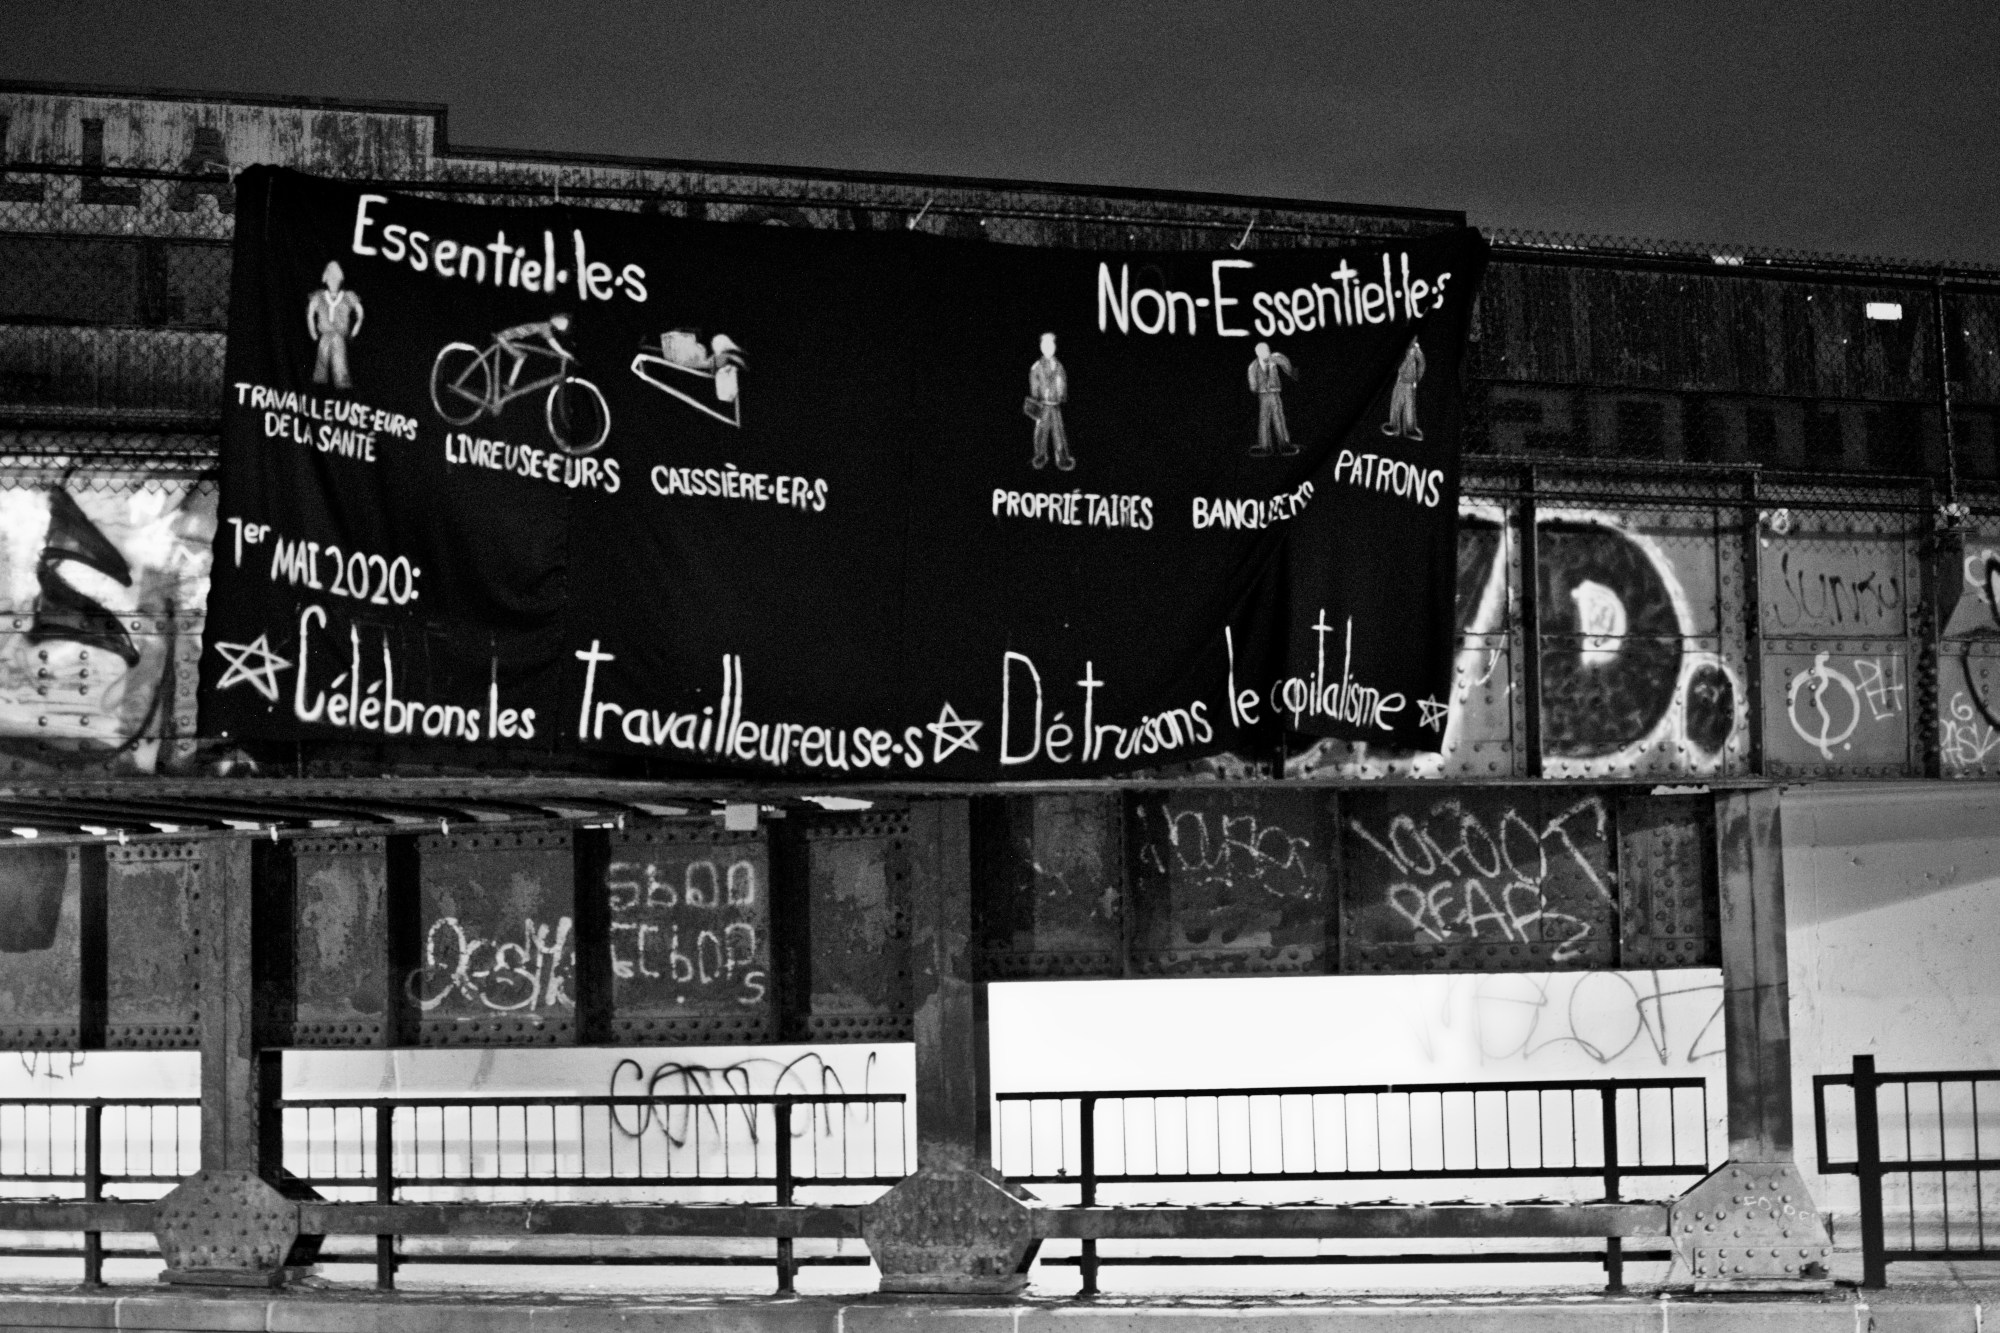 Essentiel·le·s
Non-Essentiel·le·s
TRAVAILLEUSE·EUR·S
DE LA SANTÉ
LIVREUSE·EUR·S
CAISSIÈRE·ER·S
PROPRIÉTAIRES
BANQUIERS
PATRONS
1er MAI 2020:
☆ Célébrons les Travailleur·euse·s ☆ Détruisons le capitalisme ☆
JUNKY
PH
VIP